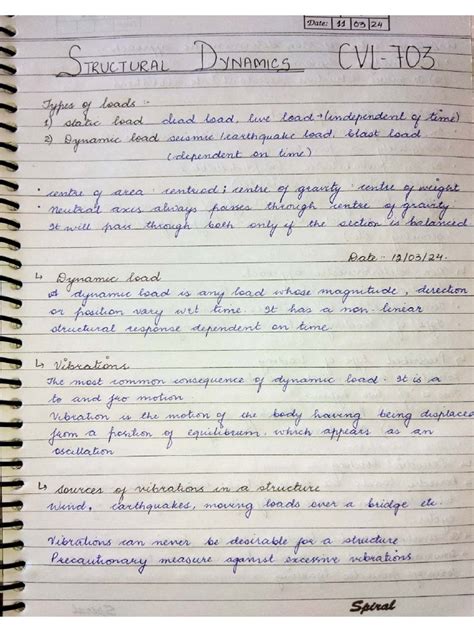 Date: 11 03 24
STRUCTURAL DYNAMICS CVL-703
Types of loads :-
1) static load dead load, live load → (independent of time)
2) Dynamic load seismic / earthquake load, blast load
(dependent on time)
· centre of area centriod ; centre of gravity centre of weight
· Neutral axis always passes through centre of gravity
It will pass through both only if the section is balanced
Date - 12/03/24.
↳ Dynamic load
A dynamic load is any load whose magnitude, direction
or position vary wrt time. It has a non-linear
structural response dependent on time.
↳ Vibrations
The most common consequence of dynamic load. It is a
to and fro motion
Vibration is the motion of the body having being displaced
from a position of equilibrium, which appears as an
oscillation
↳ sources of vibrations in a structure
wind, earthquakes, moving loads over a bridge etc.
Vibrations can never be desirable for a structure
Precautionary measure against excessive vibrations
Spiral